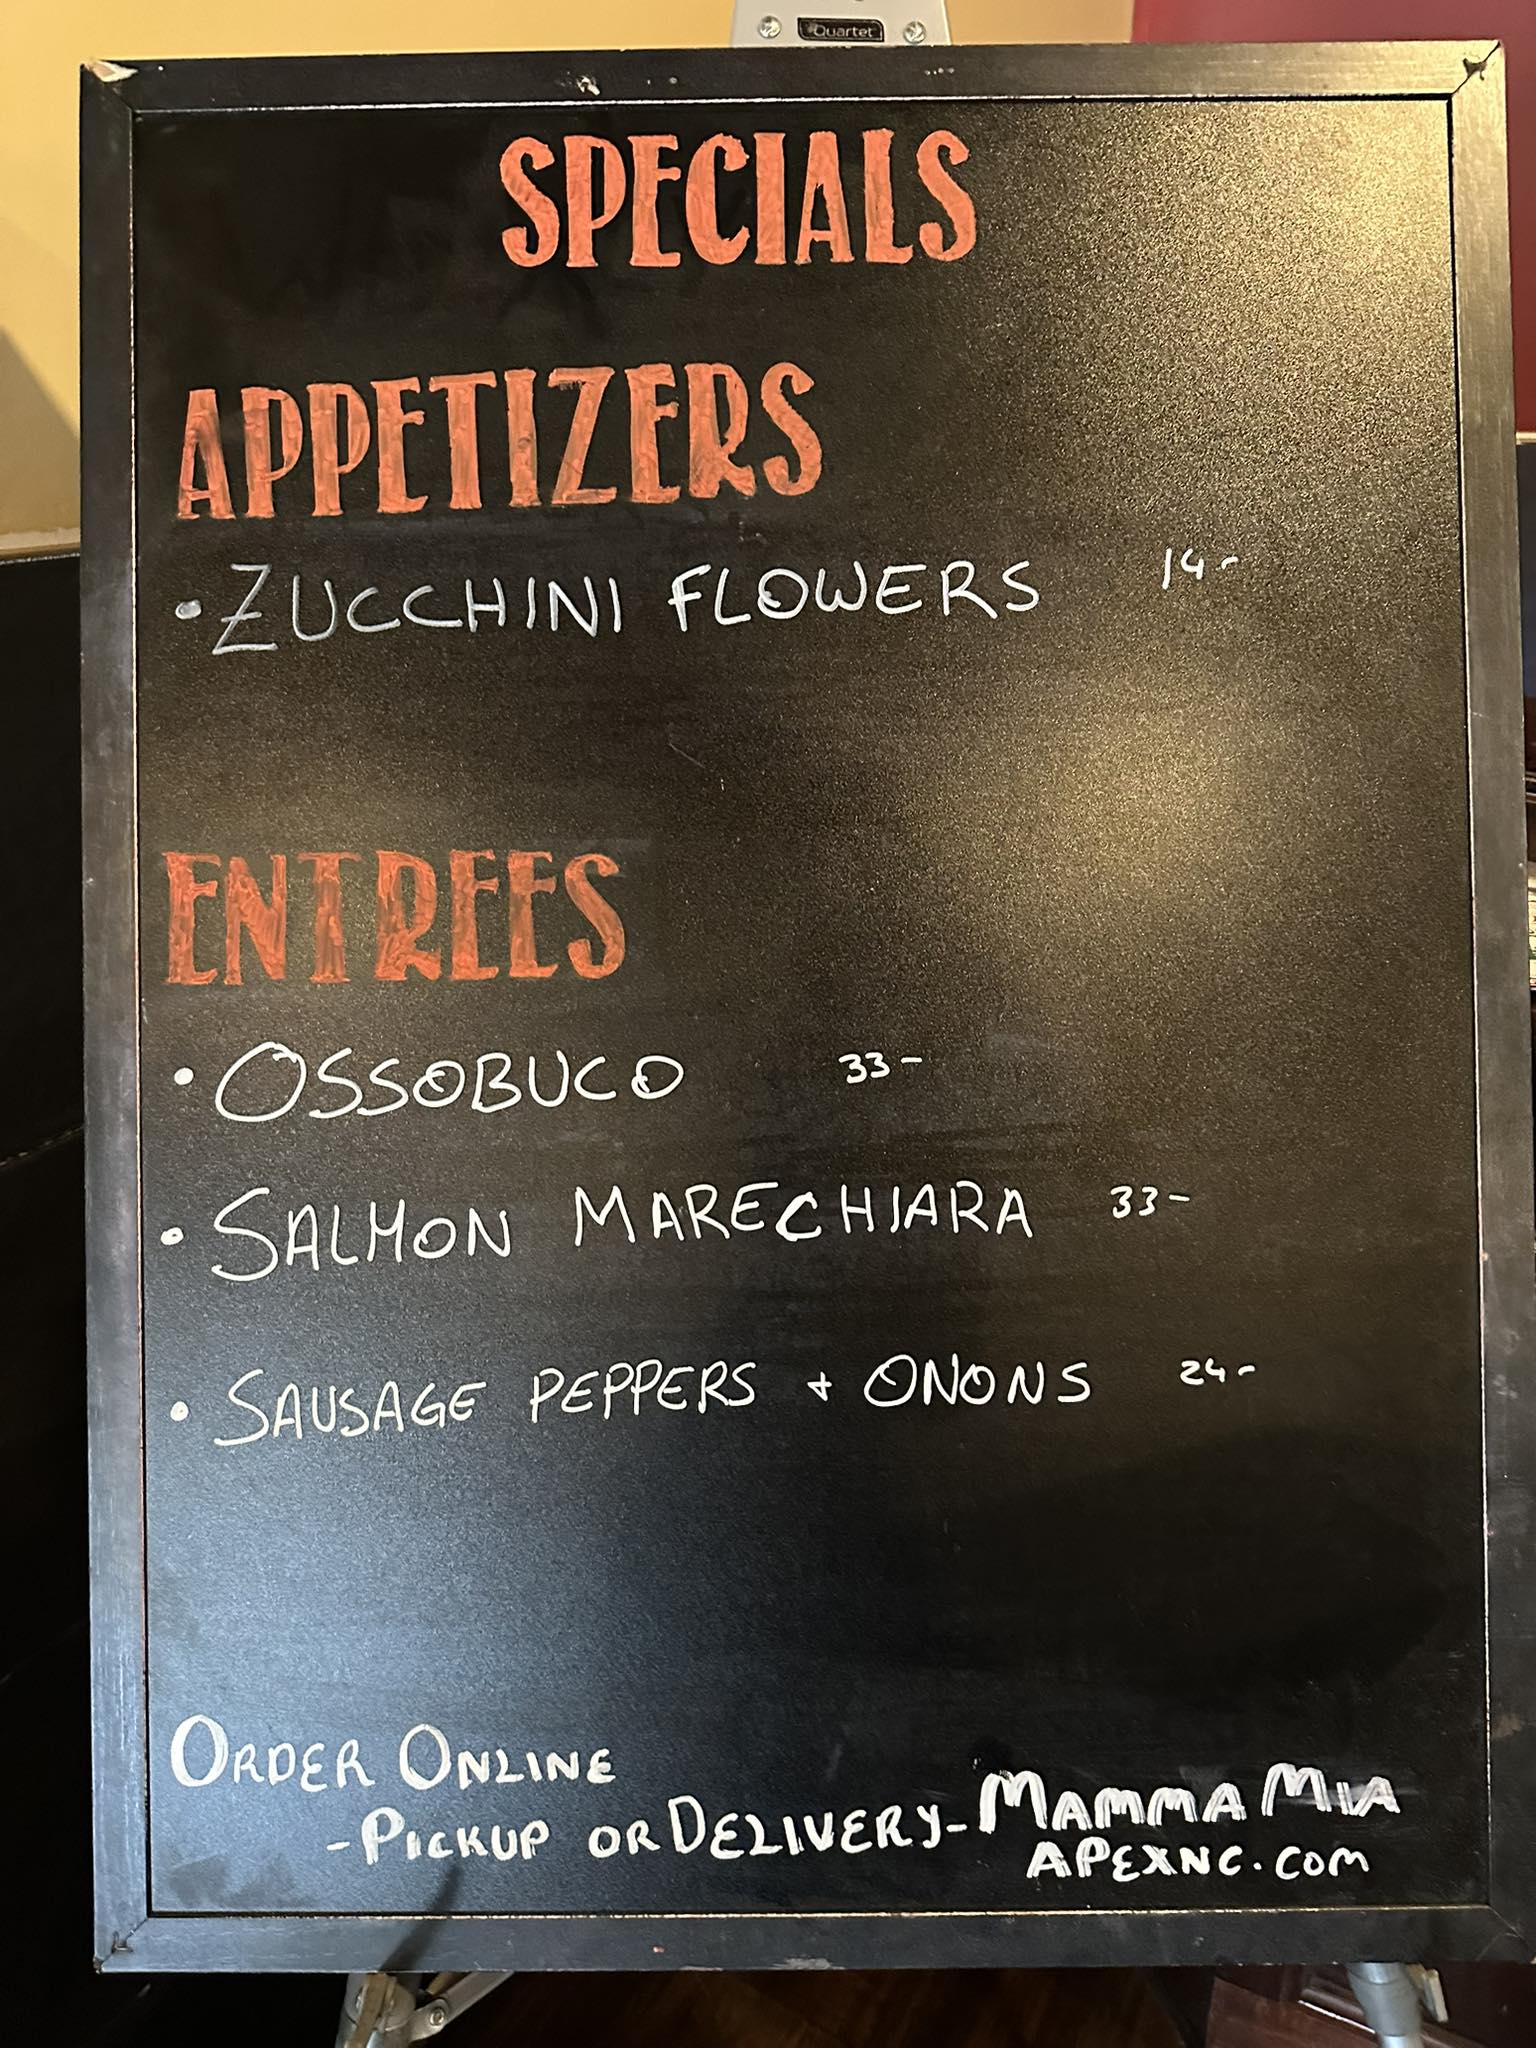 Quartet
SPECIALS
APPETIZERS
• ZUCCHINI FLOWERS 14-
ENTREES
• OSSOBUCO 33-
• SALMON MARECHIARA 33-
• SAUSAGE PEPPERS + ONONS 24-
ORDER ONLINE
- PICKUP OR DELIVERY - MAMMA MIA
APEXNC.COM